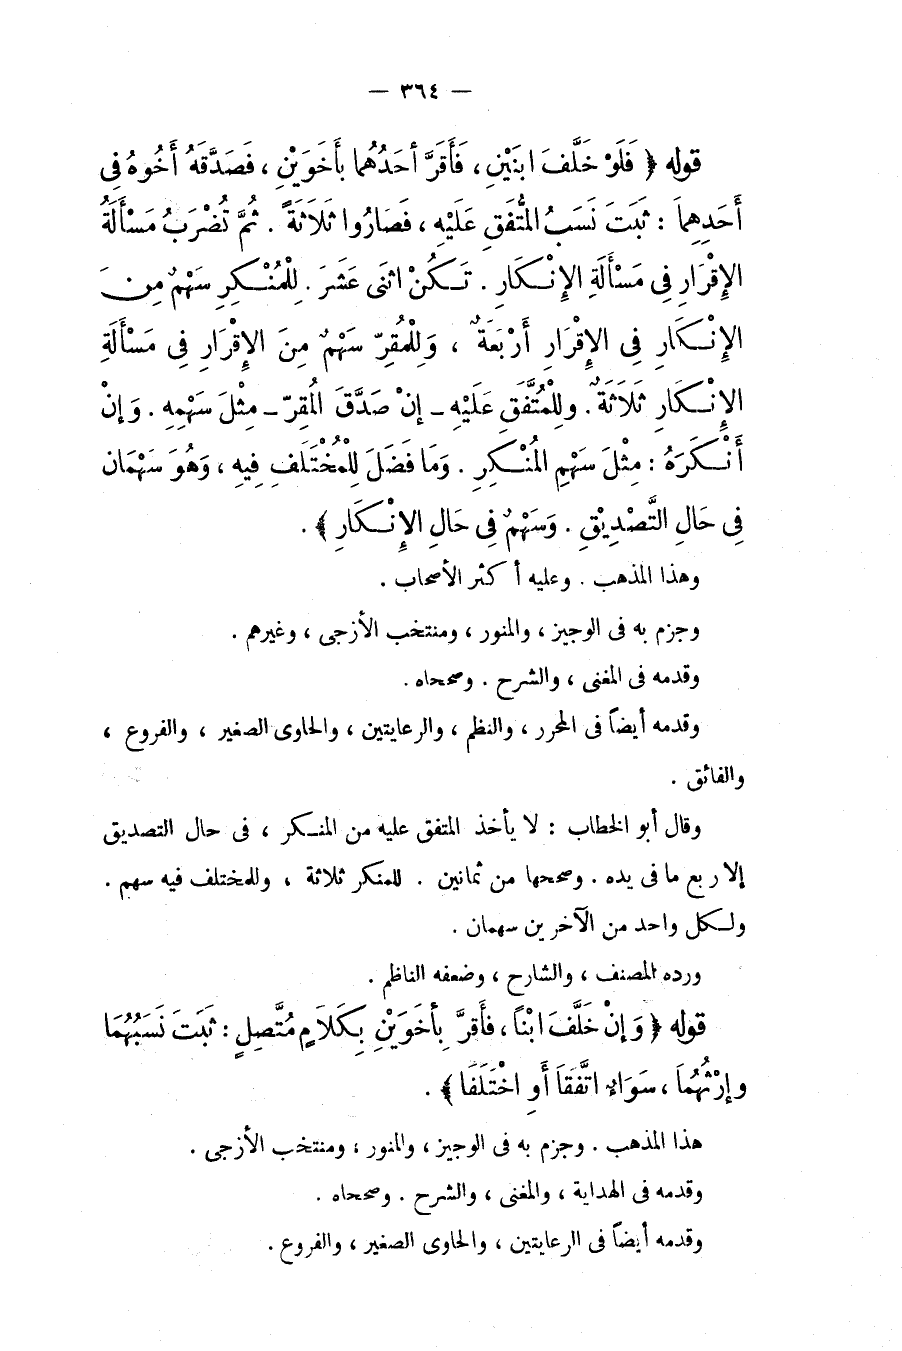 — ٣٦٤ —
قوله ﴿ فَلَوْ خَلَّفَ ابنَيْنِ ، فَأَقَرَّ أحَدُهُما بأَخَوَيْنِ ، فَصَدَّقَهُ أَخُوهُ فِى
أَحَدِهِمَا : ثَبَتَ نَسَبُ المُتَّفَقِ عَلَيْهِ ، فَصَارُوا ثَلَاثَةً . ثُمَّ تُضْرَبُ مَسْأَلَةُ
الإِقْرَارِ فِى مَسْأَلَةِ الإِنْكَارِ . تَكُنْ اثْنَى عَشَرَ . لِلْمُنْكِرِ سَهْمٌ مِنَ
الإِنْكَارِ فِى الإِقْرَارِ أَرْبَعَةٌ ، وَلِلْمُقِرِّ سَهْمٌ مِنَ الإِقْرَارِ فِى مَسْأَلَةِ
الإِنْكَارِ ثَلَاثَةٌ . ولِلْمُتَّفَقِ عَلَيْهِ ـ إنْ صَدَّقَ المُقِرّ ـ مِثْلَ سَهْمِهِ . وَإنْ
أَنْكَرَهُ : مِثْلَ سَهْمِ المُنْكِرِ . وَمَا فَضَلَ لِلْمُخْتَلَفِ فِيهِ ، وَهُوَ سَهْمَان
فِى حَالِ التَّصْدِيْقِ . وَسَهْمٌ فِى حَالِ الإِنْكَارِ ﴾ .
وهذا المذهب . وعليه أكثر الأصحاب .
وجزم به فى الوجيز ، والمنور ، ومنتخب الأزجى ، وغيرهم .
وقدمه فى المغنى ، والشرح . وصححاه .
وقدمه أيضاً فى المحرر ، والنظم ، والرعايتين ، والحاوى الصغير ، والفروع ،
والفائق .
وقال أبو الخطاب : لا يأخذ المتفق عليه من المنكر ، فى حال التصديق
إلا ربع ما فى يده . وصححها من ثمانين . للمنكر ثلاثة ، وللمختلف فيه سهم .
ولكل واحد من الآخرين سهمان .
ورده المصنف ، والشارح ، وضعفه الناظم .
قوله ﴿ وَإنْ خَلَّفَ ابْنًا ، فأَقَرَّ بِأَخَوَيْنِ بِكَلَامٍ مُتَّصِلٍ : ثَبَتَ نَسَبُهُمَا
وإرْثُهُمَا ، سَوَاءٌ اتَّفَقَا أَوِ اخْتَلَفَا ﴾ .
هذا المذهب . وجزم به فى الوجيز ، والمنور ، ومنتخب الأزجى .
وقدمه فى الهداية ، والمغنى ، والشرح . وصححاه .
وقدمه أيضاً فى الرعايتين ، والحاوى الصغير ، والفروع .